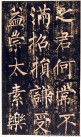 之君何常不
滿招損謙受
益崇太素